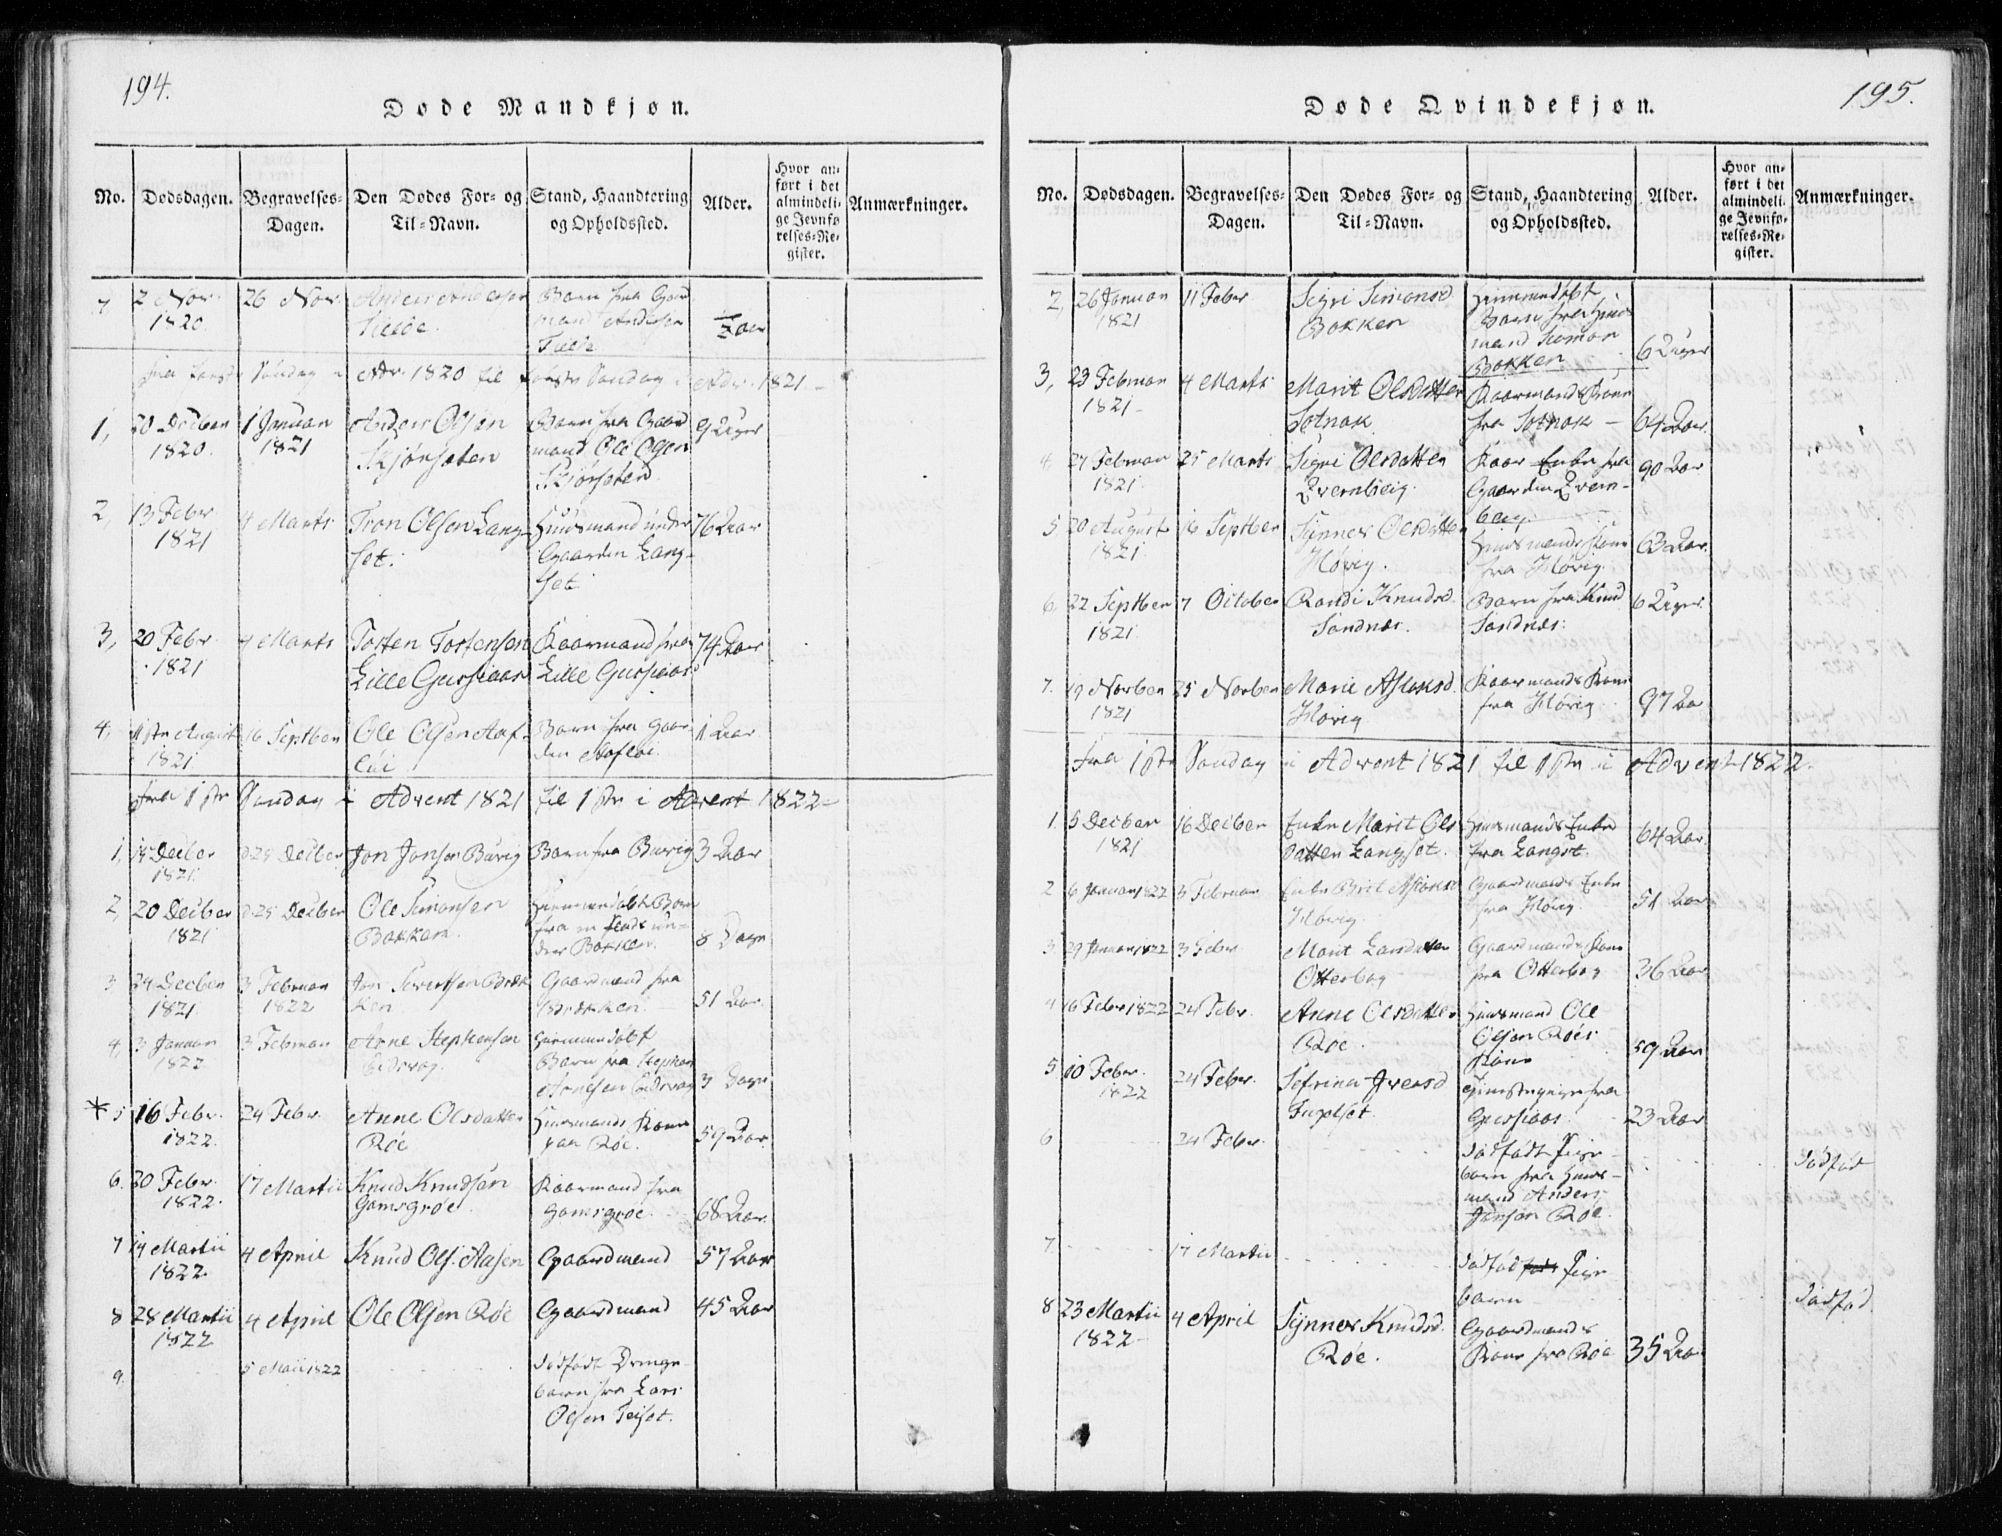 194.
Døde Mandkjøn.
No.
Dødsdagen.
Begravelses-
Dagen.
Den Dødes For- og
Til-Navn.
Stand, Haandtering
og Opholdssted.
Alder.
Hvor an-
ført i det
almindeli-
ge Jevnfø
relses-Re-
gister.
Anmærkninger.
7
2 Nov.
1820.
26 Nov.
Anders
Barn fra Gaar
mand Andersen
Aar
fra første Søndag i Adv. 1820 til første Søndag i Adv. 1821 -
1,
20 Decben
1820.
1 Januar
1821
Anders Olsen
Skjørsæten
Barn fra Gaar
mand Ole Olsen
Skjørsæten
9 Uger
2,
13 Febr
1821
4 Marts
Tron Olsen Lang-
set.
Huusmand under
Gaarden Lang-
set
76 Aar
3,
20 Febr
1821
4 Marts
Tosten Tostensen
Lille Gussiaas
Kaarmand fra
Lille Gussiaas
74 Aar
4,
1ste August
1821
16 Septben
Ole Olsen Aaf-
løi
Barn fra Gaar-
den Aafløi
1 Aar
fra 1ste Søndag i Advent 1821 til 1ste i Advent 1822-
1,
Decber
1821.
d. 25 Decber
Jon Jonsen Buvig
Barn fra Buvig
3 Aar
2,
20 Decber
1821
d. 25 Decber
Ole Simonsen
Bakken.
Hiemmedøbt Barn
fra en Plads un-
der Bakken.
8 Dage
3
29 Decben
1821.
3 Februar
1822
Jon Sivertsen Bræk
ken
Gaardmand fra
Brækken.
51 Aar.
4,
3 Januar
1822
3 Februar
Arne Stephensen
Eidsvag.
Hiemmedøbt
Barn fra Stephen
Arnesen Eidsvag
3 Dage
* 5
16 Febr.
1822.
24 Febr.
Anne Olsdatter
Røe
Huusmands Kone
paa Røe.
59 Aar
6.
20 Febr.
1822.
17 Martii
Knud Knudsøn
Gamsgrøe
Kaarmand fra
Gamsgrøe.
68 Aar.
7
14 Martii
1822.
4 April
Knud Ols. Aasen
Gaardmand
57 Aar
8
28 Martii
1822
4 April
Ole Olsen Røe
Gaardmand
45 Aar
9.
5 Maii 1822
dødfødt Drenge-
barn fra Lars
Olsen Teiset.
195.
Døde Qvindekjøn.
No.
Dødsdagen.
Begravelses-
Dagen.
Den Dødes For- og
Til-Navn.
Stand, Haandtering
og Opholdssted.
Alder.
Hvor an-
ført i det
almindeli-
ge Jevnfø-
relses-Re-
gister.
Anmærkninger.
2,
26 Januar
1821
11 Feber
Sigri Simonsd
Bakken
Hiemmedøbt
Barn fra Huus
mand Simon
Bakken
6 Uger
3,
23 Februar
1821-
4 Marts
Marit Olsdatter
Sotnak
Kaarmands Kone
fra Sotnak -
64 Aar
4.
27 Februar
1821
25 Marts
Sigri Olsdatter
Qvernbieig.
Kaar Enke fra
Gaarden Qvern-
beig.
90 Aar
5
20 August
1821
16 Septben
Synnev Olsdatter
Høvig.
Huusmands Kone
fra Høvig.
63 Aar.
6,
22 Septben
1821
7 October
Randi Knudsd.
Sandnæs.
Barn fra Knud
Sandnæs.
6 Uger.
7.
19 Novben
1821
25 Novben
Marie Aslaksd.
Høvig
Kaarmands Kone
fra Høvig
97 Aar
fra 1ste Søndag i Advent 1821 til 1ste i Advent 1822.
1.
5 Decben
1821
16 Decben
Enke Marit Ols
datter Langset.
Huusmands Enke
fra Langset.
64 Aar.
2
6 Januar 1822
3 Februar
Enke Brit Aslaksd
Høvig.
Gaardmands Enke
fra Høvig.
51 Aar
3.
29 Januar 1822
3 Febr.
Marit Larsdatter
Otterbog
Gaardmands Kone
fra Otterbog
36 Aar
4
16 Febr 1822
24 Febr.
Anne Olsdatter
Røe.
Huusmand Ole
Olsen Røes
Kone
59 Aar
5
10 Febr.
1822
24 Febr.
Sefrina Iversd
Inselset.
Tienestepige fra
Gussiaas
23 Aar
6
24 Febr.
dødfødt Pige-
barn fra Huus-
mand Anders
Jonsøn Røe.
dødfød
7.
17 Martii
dødfød Pige
barn
dødfød.
8
23 Martii
1822-
4 April
Synnev Knudsd.
Røe.
Gaardmands
Kone fra Røe
35 Aar